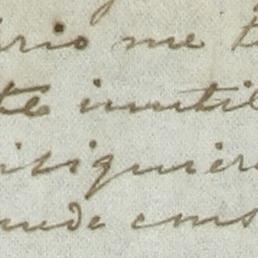 rio me t
te inutil
isiquier
uede cons